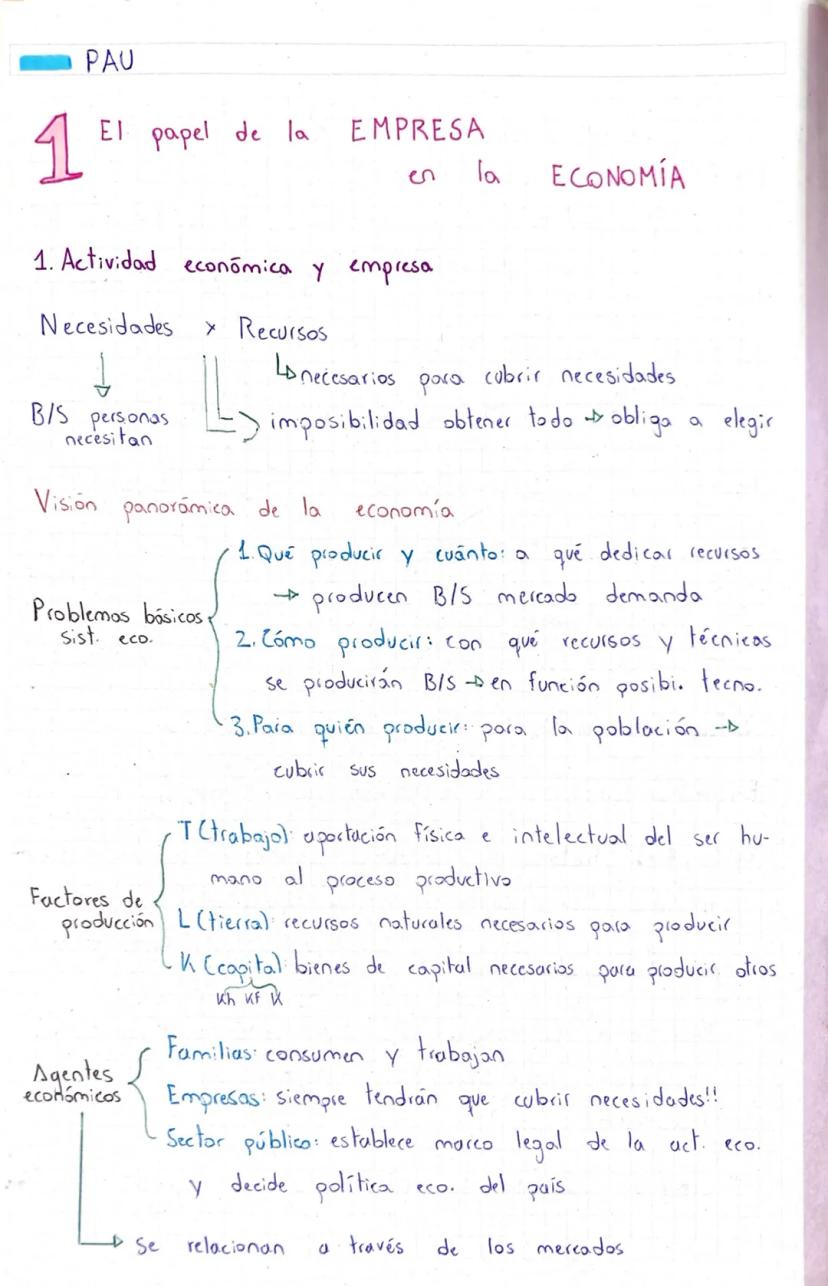 PAU
1 El papel de la EMPRESA
en la ECONOMÍA
1. Actividad económica y empresa
Necesidades x Recursos
↳ necesarios para cubrir necesidades
B/S personas
necesitan
imposibilidad obtener todo → obliga a elegir
Visión panorámica de la economía
Problemas básicos
sist. eco.
1. Qué producir y cuánto: a qué dedicar recursos
→ producen B/S mercado demanda
2. Cómo producir: con qué recursos y técnicas
se producirán B/S → en función posibi. tecno.
3. Para quién producir: para la población →
cubrir sus necesidades
Factores de
producción
T (trabajo): aportación física e intelectual del ser hu-
mano al proceso productivo
L (tierra): recursos naturales necesarios para producir
K (capital): bienes de capital necesarios para producir otros
Kh Kf K
Agentes
económicos
Familias: consumen y trabajan
Empresas: siempre tendrán que cubrir necesidades!!
Sector público: establece marco legal de la act. eco.
y decide política eco. del país
→ se relacionan a través de los mercados